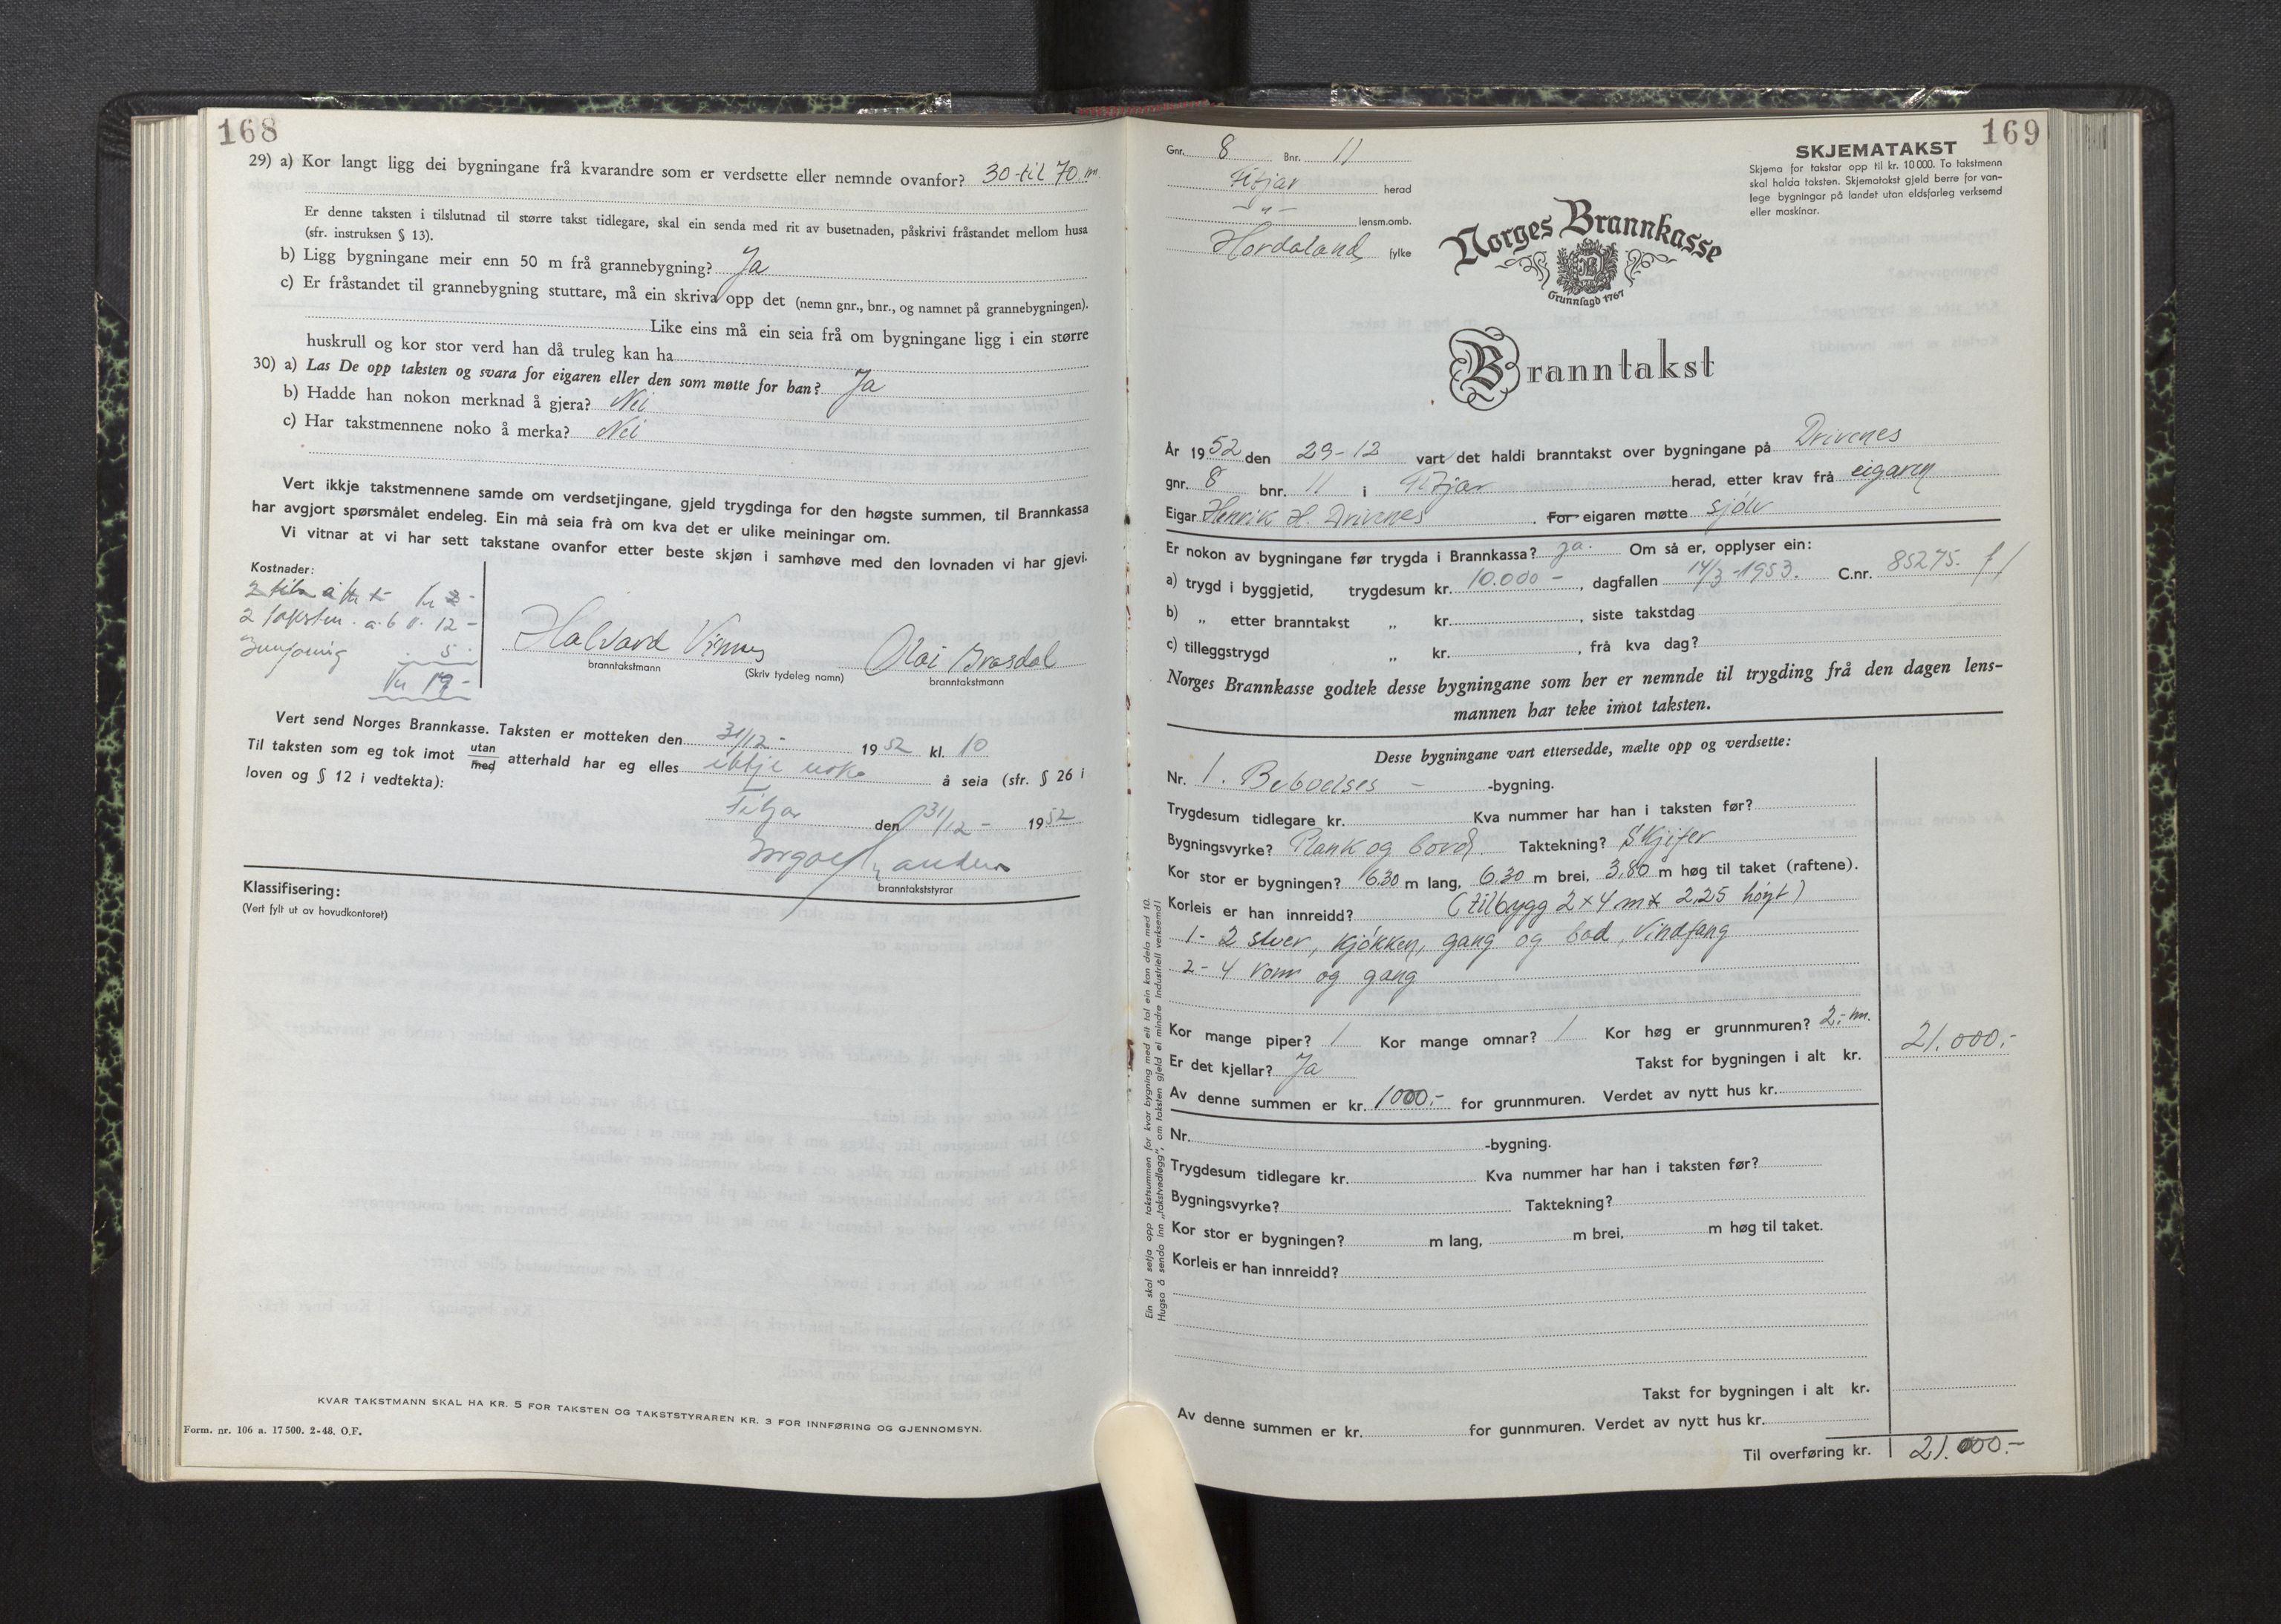 168
29) a) Kor langt ligg dei bygningane frå kvarandre som er verdsette eller nemnde ovanfor? 30 til 70 m.
Er denne taksten i tilslutnad til større takst tidlegare, skal ein senda med rit av busetnaden, påskrivi fråstandet mellom husa
(sfr. instruksen § 13).
b) Ligg bygningane meir enn 50 m frå grannebygning? Ja
c) Er fråstandet til grannebygning stuttare, må ein skriva opp det (nemn gnr., bnr., og namnet på grannebygningen).
Like eins må ein seia frå om bygningane ligg i ein større
huskrull og kor stor verd han då truleg kan ha
30) a) Las De opp taksten og svara for eigaren eller den som møtte for han? Ja
b) Hadde han nokon merknad å gjera? Nei
c) Har takstmennene noko å merka? Nei
Vert ikkje takstmennene samde om verdsetjingane, gjeld trygdinga for den høgste summen, til Brannkassa
har avgjort spørsmålet endeleg. Ein må seia frå om kva det er ulike meiningar om.
Vi vitnar at vi har sett takstane ovanfor etter beste skjøn i samhøve med den lovnaden vi har gjevi.
Kostnader:
2 takstm. a. 6 kr. 12 -
5 -
Kr 19 -
Halvard
branntakstmann
(Skriv tydeleg namn)
Olai
branntakstmann
Vert send Norges Brannkasse. Taksten er motteken den 31/12 - 1952 kl. 10
Til taksten som eg tok imot utan med atterhald har eg elles ikkje noko å seia (sfr. § 26 i
loven og § 12 i vedtekta):
Fitjar den 31/12 - 1952
branntakststyrar
Klassifisering:
(Vert fylt ut av hovudkontoret)
KVAR TAKSTMANN SKAL HA KR. 5 FOR TAKSTEN OG TAKSTSTYRAREN KR. 3 FOR INNFØRING OG GJENNOMSYN.
Form. nr. 106 a. 17 500. 2-48. O.F.
169
Gnr. 8 Bnr. 11
Fitjar herad
- " - lensm.omb.
Hordaland fylke
SKJEMATAKST
Skjema for takstar opp til kr. 10 000. To takstmenn
skal halda taksten. Skjematakst gjeld berre for van-
lege bygningar på landet utan eldsfarleg verksemd
eller maskinar.
Norges Brannkasse
Grunnlagd 1767
Branntakst
År 1952 den 29-12 vart det haldi branntakst over bygningane på Drivenes
gnr. 8 bnr. 11 i Fitjar herad, etter krav frå eigaren
Eigar Henrik H. Drivenes. For eigaren møtte sjølv
Er nokon av bygningane før trygda i Brannkassa? ja. Om så er, opplyser ein:
a) trygd i byggjetid, trygdesum kr. 10.000 -, dagfallen 14/3 - 1953. C.nr. 85275. f/
b) „ etter branntakst „ kr. , siste takstdag
c) tilleggstrygd „ kr. , frå kva dag?
Norges Brannkasse godtek desse bygningane som her er nemnde til trygding frå den dagen lens-
mannen har teke imot taksten.
Desse bygningane vart ettersedde, mælte opp og verdsette:
Nr. 1. Beboelses - -bygning.
Trygdesum tidlegare kr. Kva nummer har han i taksten før?
Bygningsvyrke? Plank og bord Taktekning? Skjifer
Kor stor er bygningen? 6.30 m lang, 6.30 m brei, 3.80 m høg til taket (raftene).
Korleis er han innreidd? (tilbygg 2 x 4 m x 2.25 høgt)
1 - 2 stuer, kjøkken, gang og bad, vindfang
2 - 4 rom og gang
Kor mange piper? 1 Kor mange omnar? 1 Kor høg er grunnmuren? 2,- m.
Er det kjellar? Ja Takst for bygningen i alt kr. 21.000,-
Av denne summen er kr. 1000,- for grunnmuren. Verdet av nytt hus kr.
Nr. -bygning.
Trygdesum tidlegare kr. Kva nummer har han i taksten før?
Bygningsvyrke? Taktekning?
Kor stor er bygningen? m lang, m brei, m høg til taket.
Korleis er han innreidd?
Takst for bygningen i alt kr.
Av denne summen er kr. for gunnmuren. Verdet av nytt hus kr.
Til overføring kr. 21.000.-
Ein skal setja opp takstsummen for kvar bygning med eit tal ein kan dela med 10.
Hugsa å senda inn „takstvedlegg", om taksten gjeld ei mindre industriell verksemd!